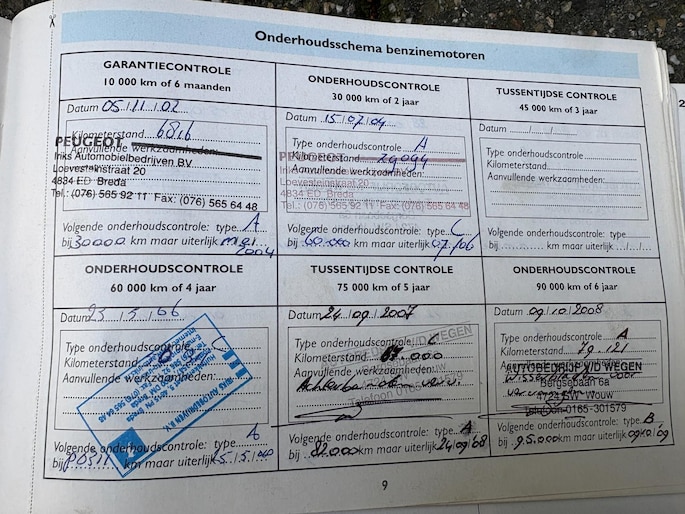 Onderhoudsschema benzinemotoren
GARANTIECONTROLE
10 000 km of 6 maanden
Datum 05/11/02
Kilometerstand 6816
Aanvullende werkzaamheden:
PEUGEOT
Inks Automobielbedrijven BV
Loevesteinstraat 20
4834 ED Breda
Tel.: (076) 565 92 11 Fax: (076) 565 64 48
Volgende onderhoudscontrole: type A
bij 30000 km maar uiterlijk mei 2004
ONDERHOUDSCONTROLE
30 000 km of 2 jaar
Datum 15/07/04
Type onderhoudscontrole A
Kilometerstand 29094
Aanvullende werkzaamheden:
PEUGEOT
Loevesteinstraat 20
4834 ED Breda
Tel.: (076) 565 92 11 Fax: (076) 565 64 48
Volgende onderhoudscontrole: type C
bij 60.000 km maar uiterlijk 07/06
TUSSENTIJDSE CONTROLE
45 000 km of 3 jaar
Datum / /
Type onderhoudscontrole
Kilometerstand
Aanvullende werkzaamheden:
Volgende onderhoudscontrole: type
bij km maar uiterlijk / /
ONDERHOUDSCONTROLE
60 000 km of 4 jaar
Datum 23/5/06
Type onderhoudscontrole C
Kilometerstand
Aanvullende werkzaamheden:
Volgende onderhoudscontrole: type A
bij km maar uiterlijk
TUSSENTIJDSE CONTROLE
75 000 km of 5 jaar
Datum 24/09/2007
Type onderhoudscontrole C
V/D WEGEN
Kilometerstand 67.000
Aanvullende werkzaamheden:
Telefoon 0165-301579
Volgende onderhoudscontrole: type A
bij 82000 km maar uiterlijk 24/09/08
ONDERHOUDSCONTROLE
90 000 km of 6 jaar
Datum 09/10/2008
Type onderhoudscontrole A
Kilometerstand 79.121
Aanvullende werkzaamheden:
AUTOBEDRIJF V/D WEGEN
Bergsebaan 6a
4724 SW Wouw
Telefoon 0165-301579
Volgende onderhoudscontrole: type B
bij 95.000 km maar uiterlijk 09/10/09
9